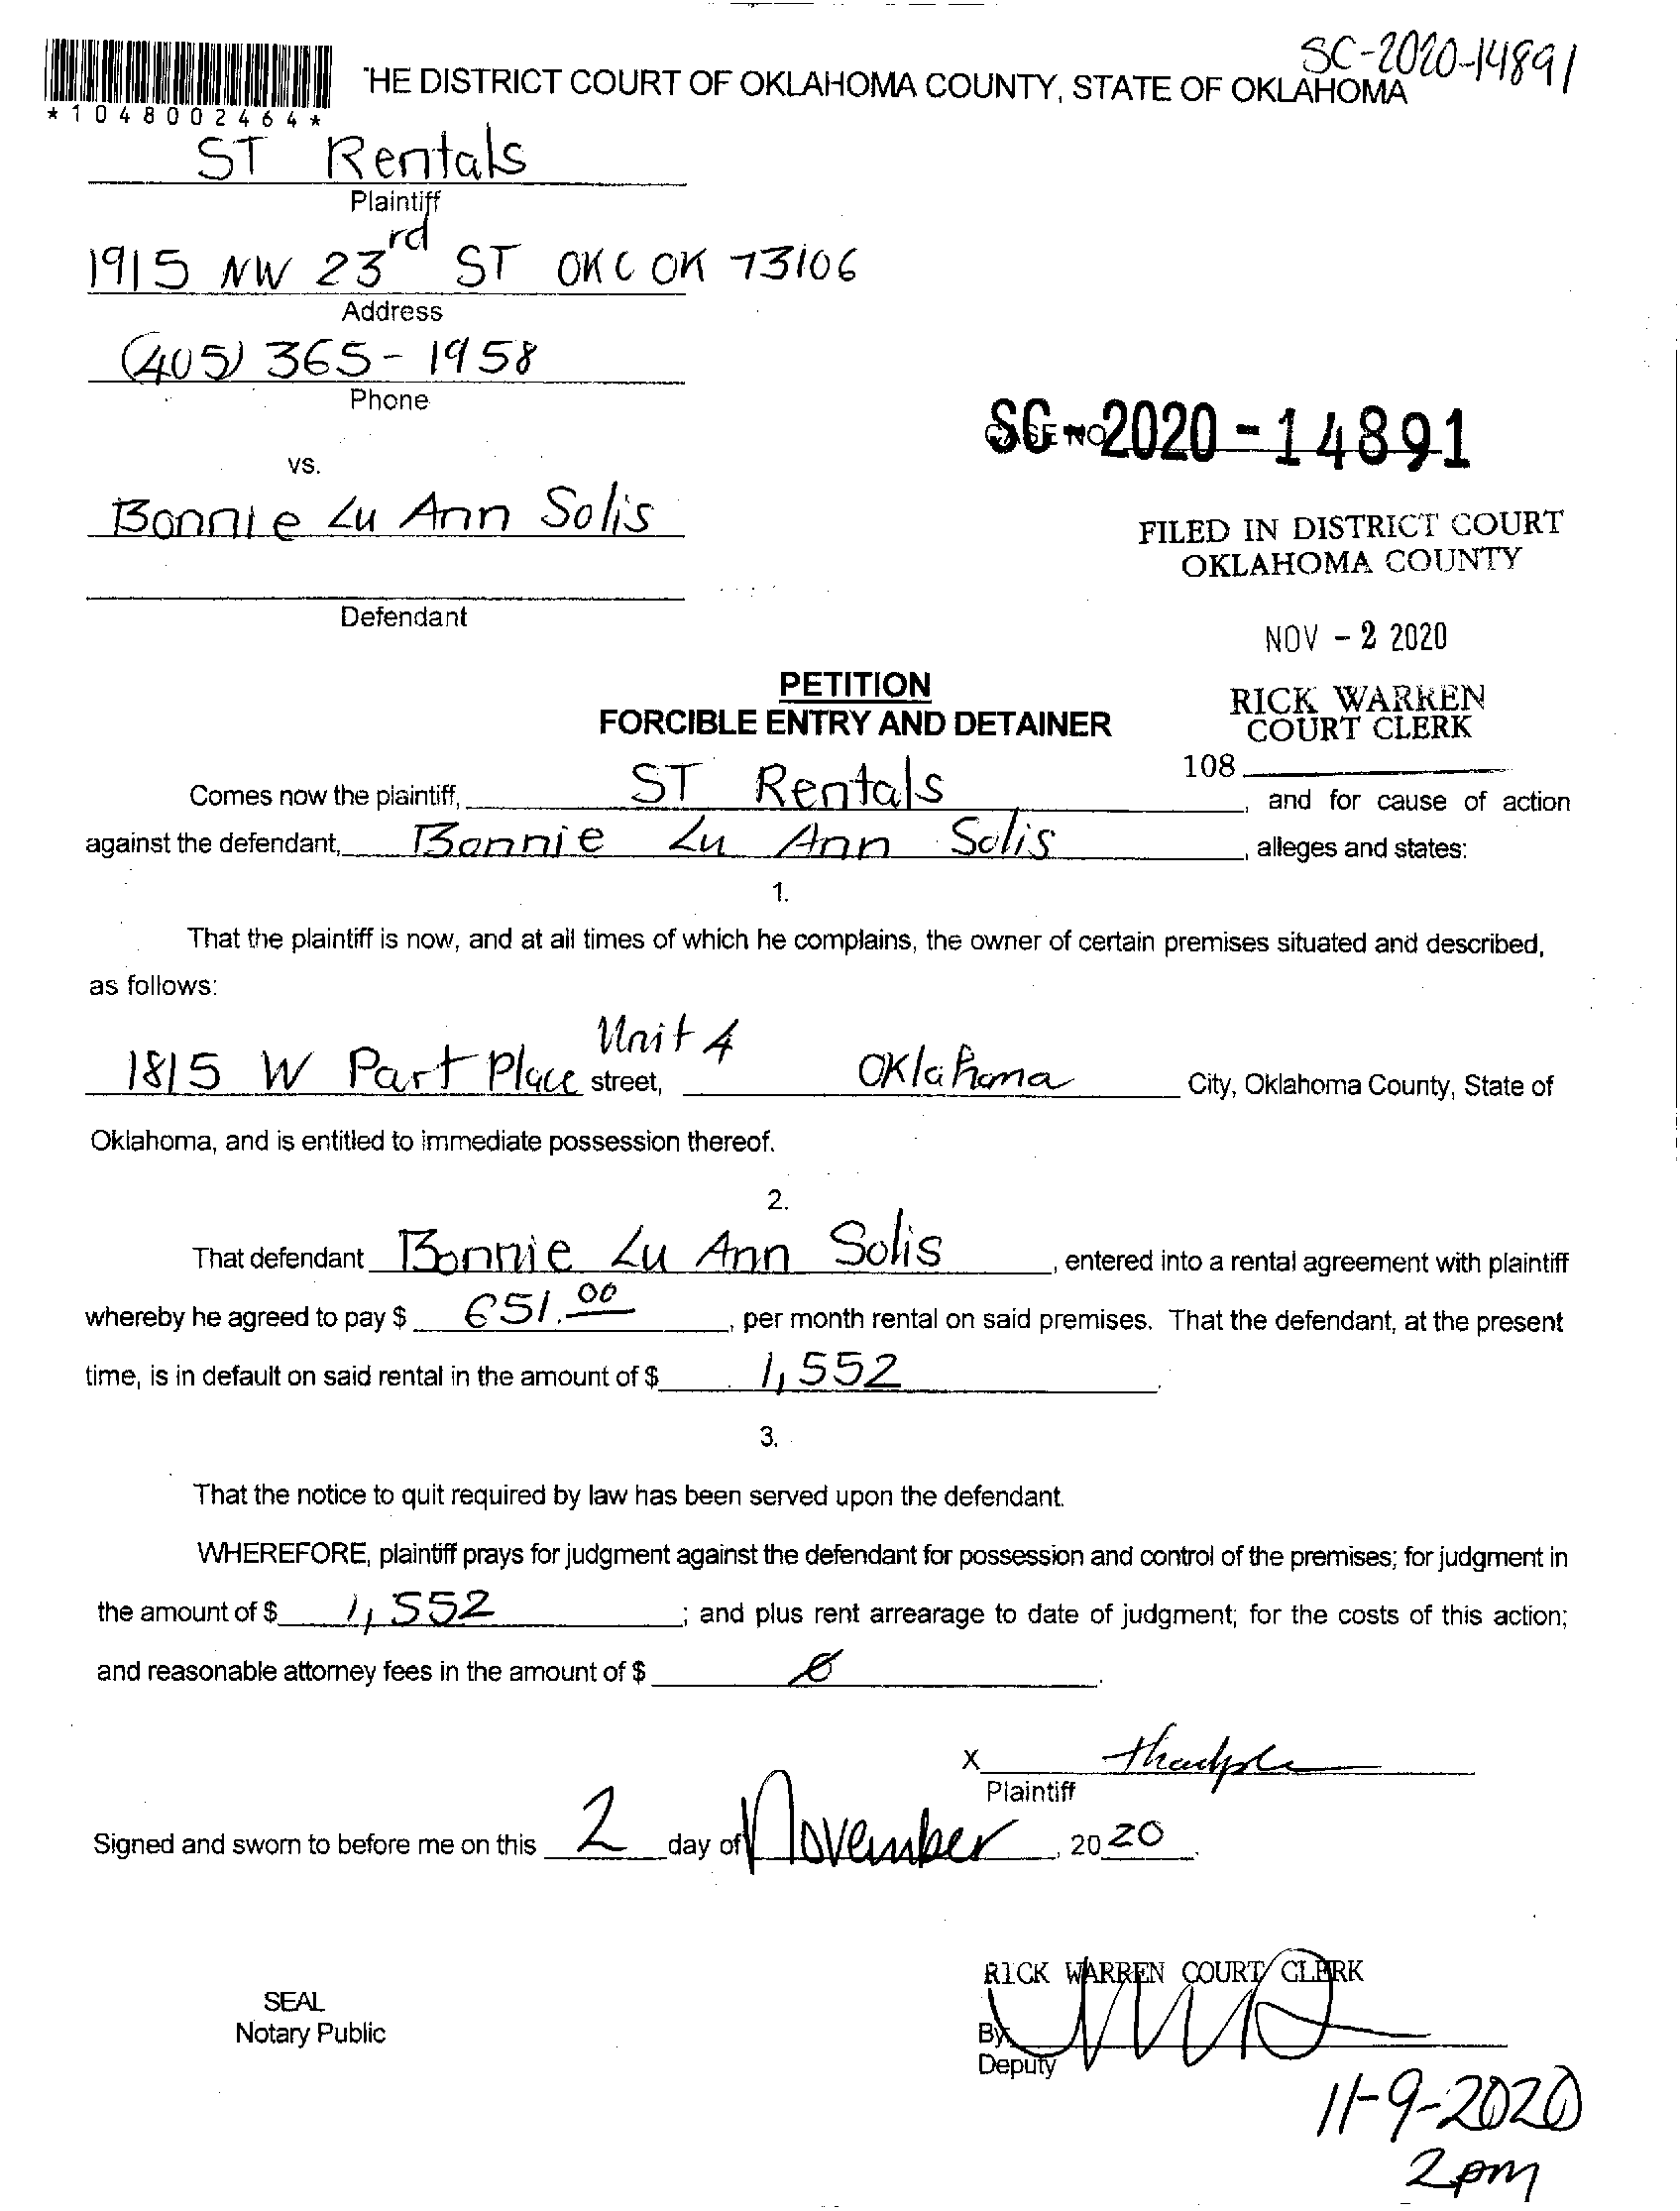 SC-2020-14891
THE DISTRICT COURT OF OKLAHOMA COUNTY, STATE OF OKLAHOMA
*1048002464*
ST Rentals
Plaintiff
1915 NW 23rd ST OKC OK 73106
Address
(405) 365-1958
Phone
SC-2020-14891
CASE NO
vs.
Bonnie Lu Ann Solis
FILED IN DISTRICT COURT
OKLAHOMA COUNTY
Defendant
NOV - 2 2020
PETITION
FORCIBLE ENTRY AND DETAINER
RICK WARREN
COURT CLERK
108
Comes now the plaintiff, ST Rentals, and for cause of action
against the defendant, Bonnie Lu Ann Solis, alleges and states:
1.
That the plaintiff is now, and at all times of which he complains, the owner of certain premises situated and described,
as follows:
1815 W Part Place Unit 4 street, Oklahoma City, Oklahoma County, State of
Oklahoma, and is entitled to immediate possession thereof.
2.
That defendant Bonnie Lu Ann Solis, entered into a rental agreement with plaintiff
whereby he agreed to pay $ 651.00, per month rental on said premises. That the defendant, at the present
time, is in default on said rental in the amount of $ 1,552.
3.
That the notice to quit required by law has been served upon the defendant.
WHEREFORE, plaintiff prays for judgment against the defendant for possession and control of the premises; for judgment in
the amount of $ 1,552; and plus rent arrearage to date of judgment; for the costs of this action;
and reasonable attorney fees in the amount of $ 0.
X
Plaintiff
Signed and sworn to before me on this 2 day of November, 2020.
RICK WARREN COURT CLERK
SEAL
Notary Public
By
Deputy
11-9-2020
2pm